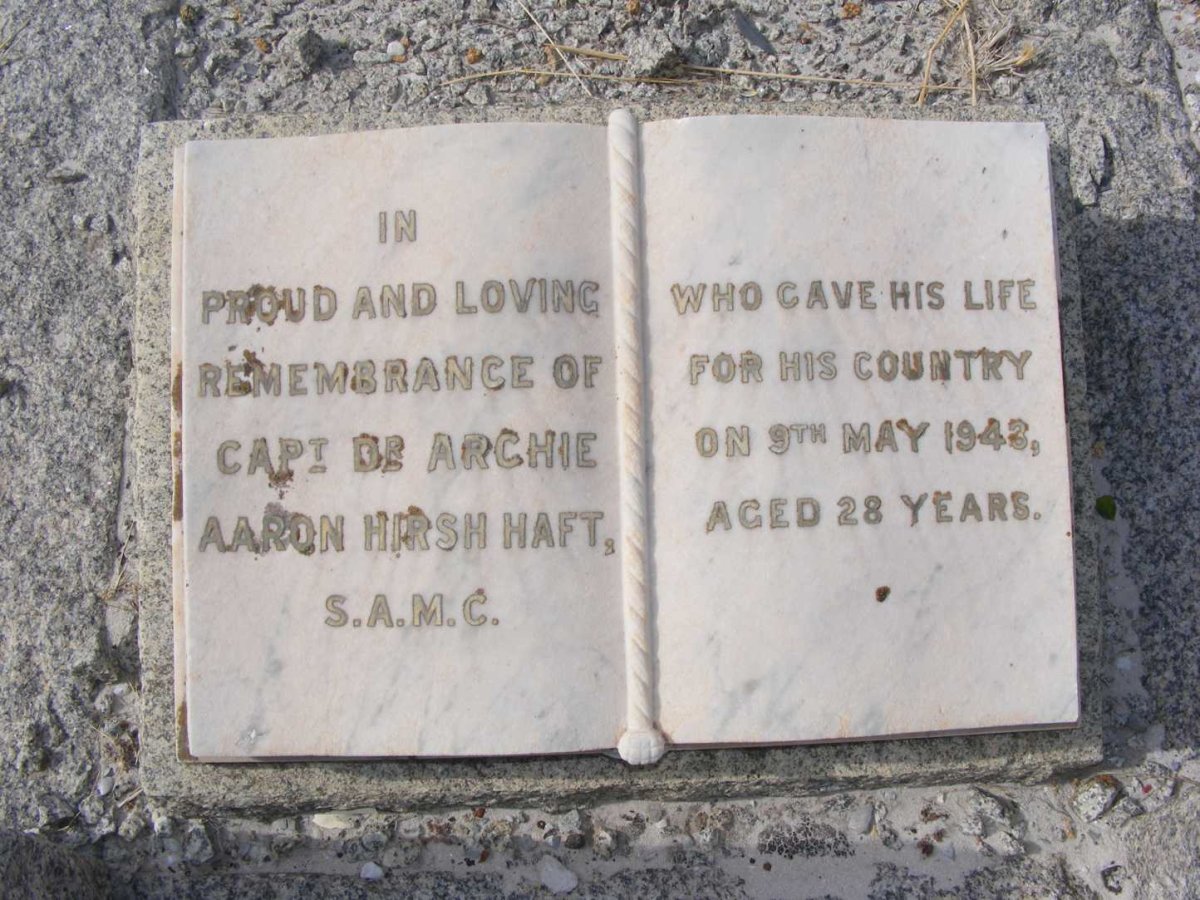 IN
PROUD AND LOVING
REMEMBRANCE OF
CAPT DR ARCHIE
AARON HIRSH HAFT,
S.A.M.C.
WHO GAVE HIS LIFE
FOR HIS COUNTRY
ON 9TH MAY 1943,
AGED 28 YEARS.